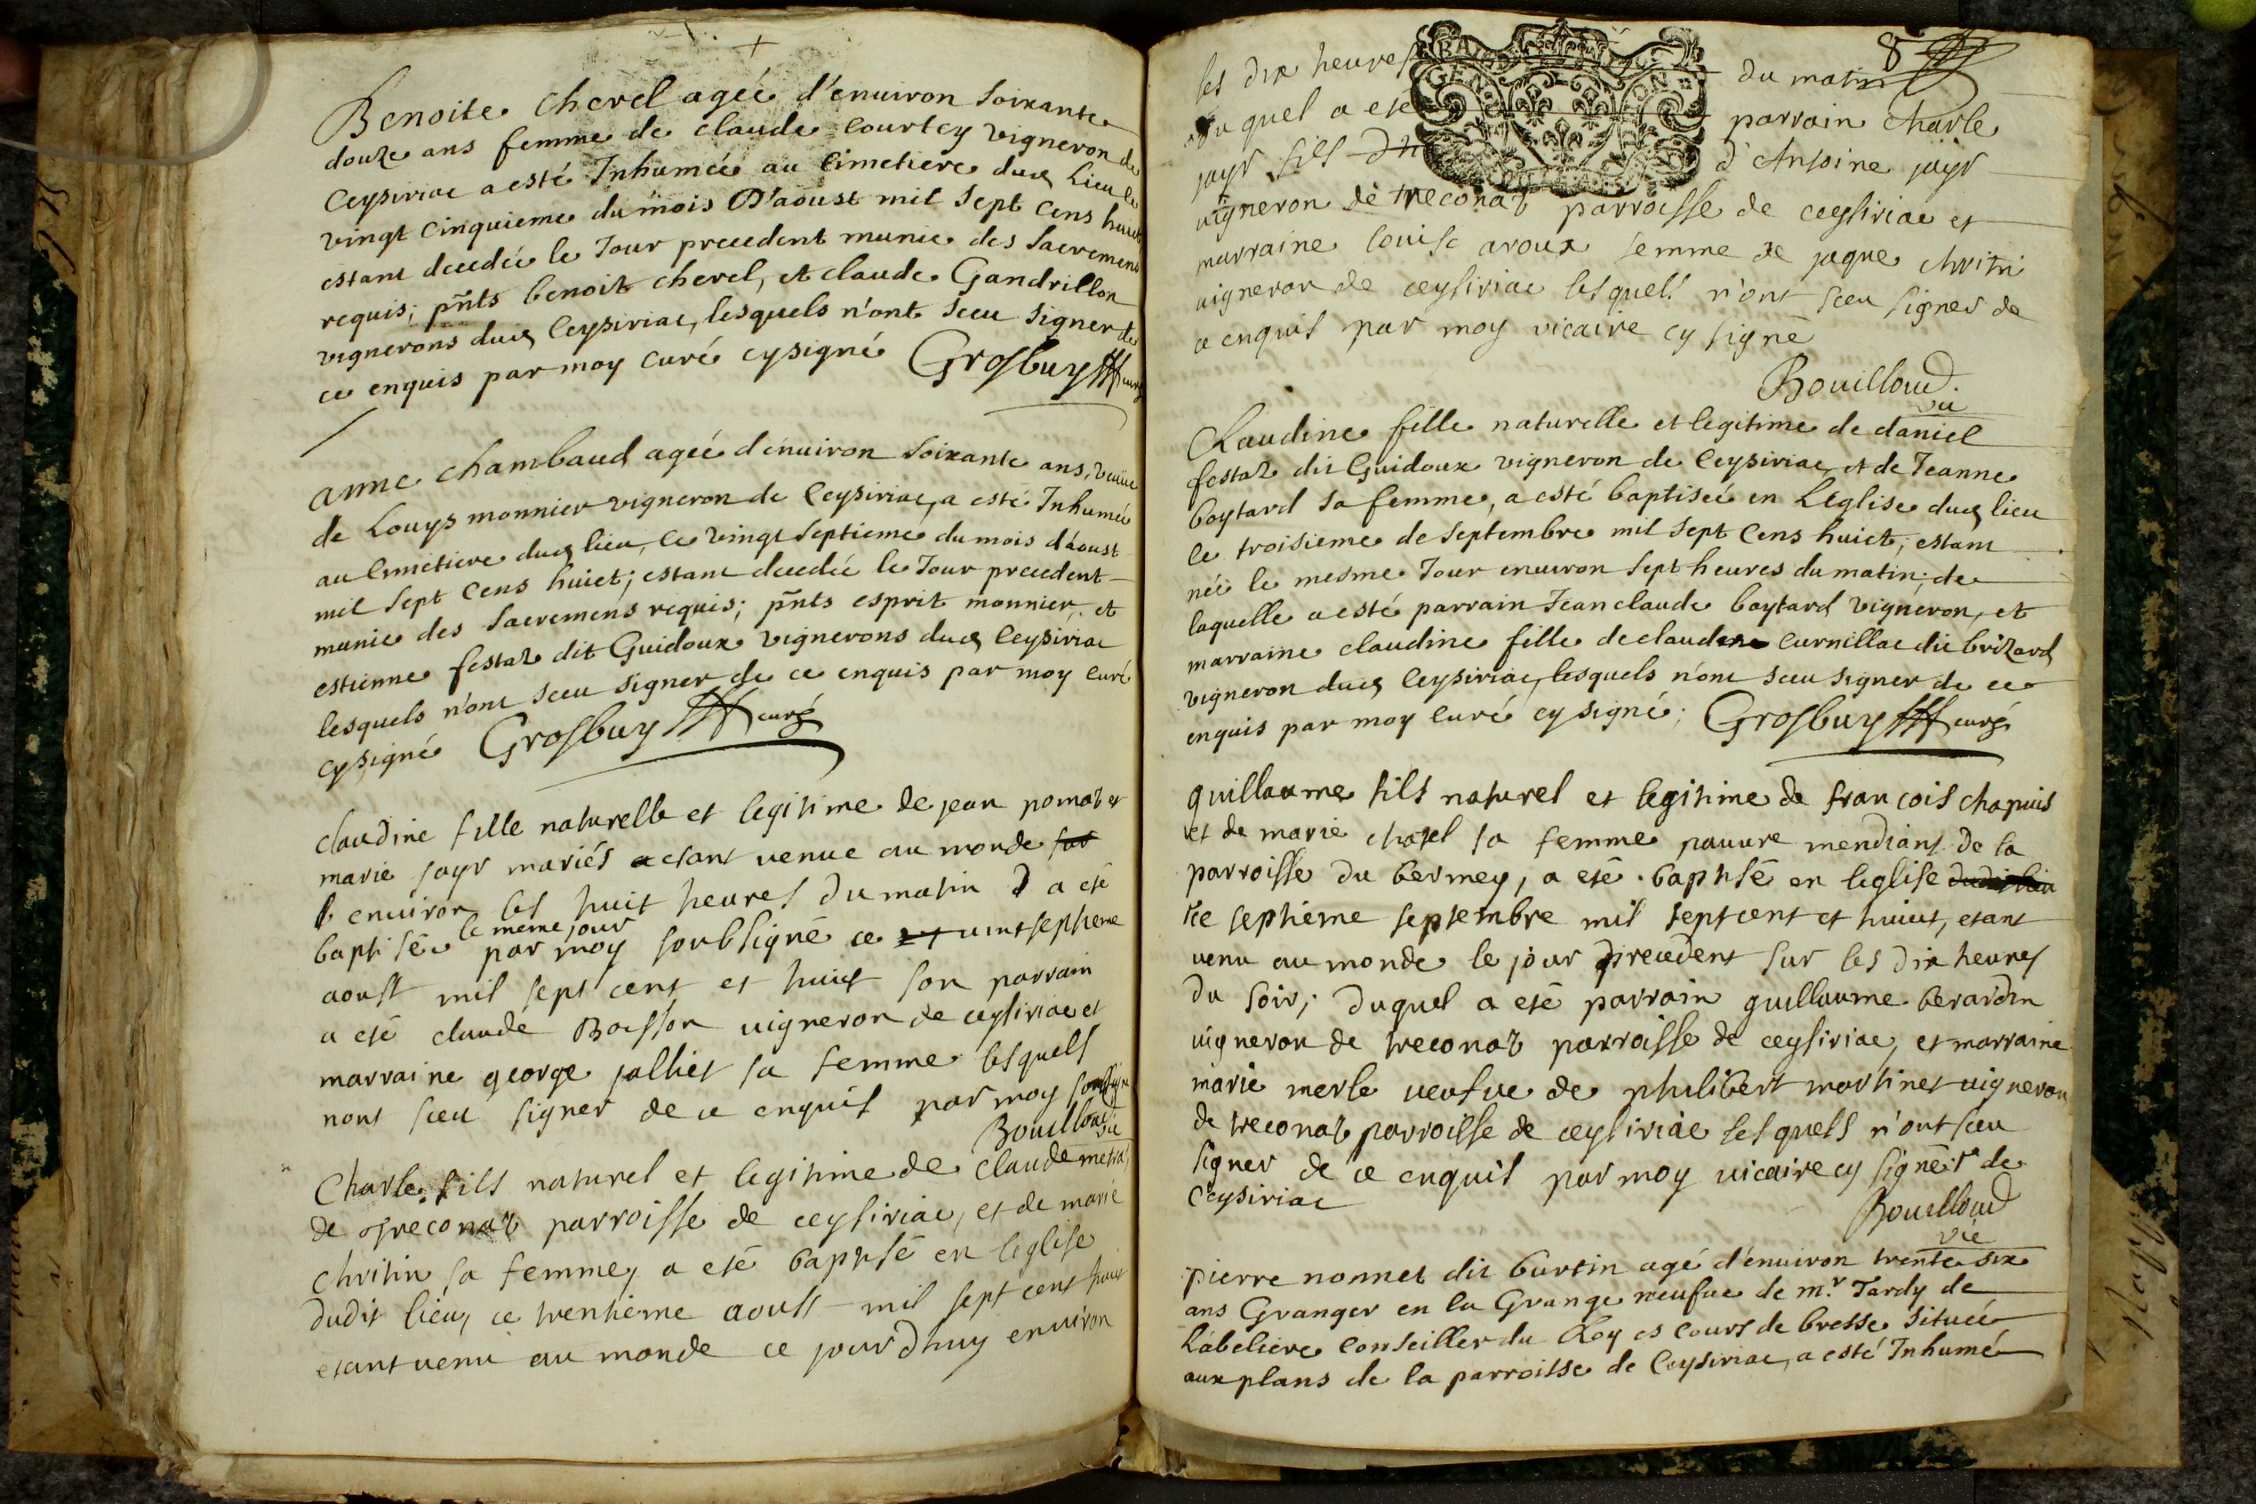 Benoite Cherel agée d'enuiron soixante
douze ans femme de claude Courtey vigneron de
Ceysiriac a esté Inhumée au Cimetiere dud lieu le
vingt cinquieme du mois D'aoust mil sept cens huict
estant decedée le Jour precedent munie des sacremens
requis; pñts benoit cherel, et claude Gandrillon
vignerons dud Ceysiriac, lesquels n'ont sceu signer de
ce enquis par moy curé cysigné Grosbuy curé
anne chambaud agée d'enuiron soixante ans, veuue
de Louys monnier vigneron de Ceysiriac, a esté Inhumée
au Cimetiere dud lieu, le vingt septieme du mois d'aoust
mil sept cens huict; estant decedée le Jour precedent
munie des sacremens requis; pñts esprit monnier, et
estienne festaz dit Guidoux vignerons dud Ceysiriac
lesquels n'ont sceu signer de ce enquis par moy curé
cysigné Grosbuy curé
claudine fille naturelle et legitime de jean pomat et
marie jayr mariés etant venue au monde sur
enuiron les huit heures du matin a eté
le meme jour
baptisée par moy soubsigné ce vint septieme
aoust mil sept cent et huict son parrain
a eté claude Boisson uigneron de ceysiriac et
marraine george jalliet sa femme lesquels
nont sceu signer de ce enquis par moy soussigné
Bouilloud
vic
Charle fils naturel et legitime de claude metra
de treconaz parroisse de ceysiriac, et de marie
chritin sa femme, a eté baptisé en leglise
dudit lieu, ce trentieme aoust mil sept cent huict
etant venu au monde ce jourdhuy enuiron
8
les dix heures du matin
duquel a eté parrain charle
jayr fils d'Antoine jayr
GEN
uigneron de treconaz parroisse de ceysiriac et
marraine louise aroux femme de jaque chritin
uigneron de ceysiriac lesquels n'ont sceu signer de
ce enquis par moy vicaire cy signé
Bouilloud.
vic
Claudine fille naturelle et legitime de daniel
festaz dit Guidoux vigneron de Ceysiriac, et de Jeanne
boytard sa femme, a esté baptisée en L'eglise dud lieu
le troisieme de septembre mil sept cens huict; estant
née le mesme Jour enuiron sept heures du matin; de
laquelle a esté parrain Jean claude boytard vigneron, et
marraine claudine fille de claude Curnillac dit brizard
vigneron dud Ceysiriac, lesquels n'ont sceu signer de ce
enquis par moy curé cy signé; Grosbuy curé
guillaume fils naturel et legitime de francois chapuis
et de marie chatel sa femme pauure mendians de la
parroisse du bermey, a eté baptisé en leglise dudit lieu
ce septieme septembre mil sept cent et huict, etant
venu au monde le jour precedent sur les dix heures
du soir; duquel a eté parrain guillaume berardin
uigneron de treconaz parroisse de ceysiriac, et marraine
marie merle veufue de philibert martinet uigneron
de treconaz parroisse de ceysiriac lesquels n'ont sceu
signer de ce enquis par moy uicaire cy signé de
Ceysiriac
Bouilloud
vic
pierre nonnet dit burtin agé d'enuiron trente six
ans Granger en la Grange neufue de m.r Tardy de
Labeliere Conseiller du Roy es Cours de bresse située
aux plans de la parroisse de Ceysiriac, a esté Inhumé